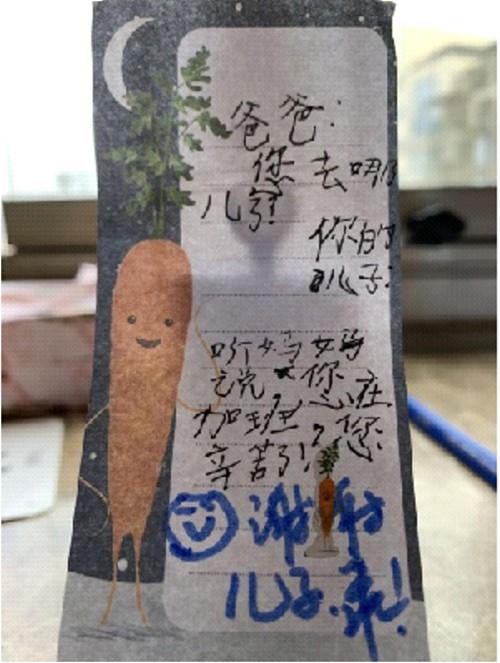 爸爸：
您去哪
儿了！
你的
儿子：
听妈妈
说，您在
加班，您
辛苦了！
谢谢
儿子.乖！